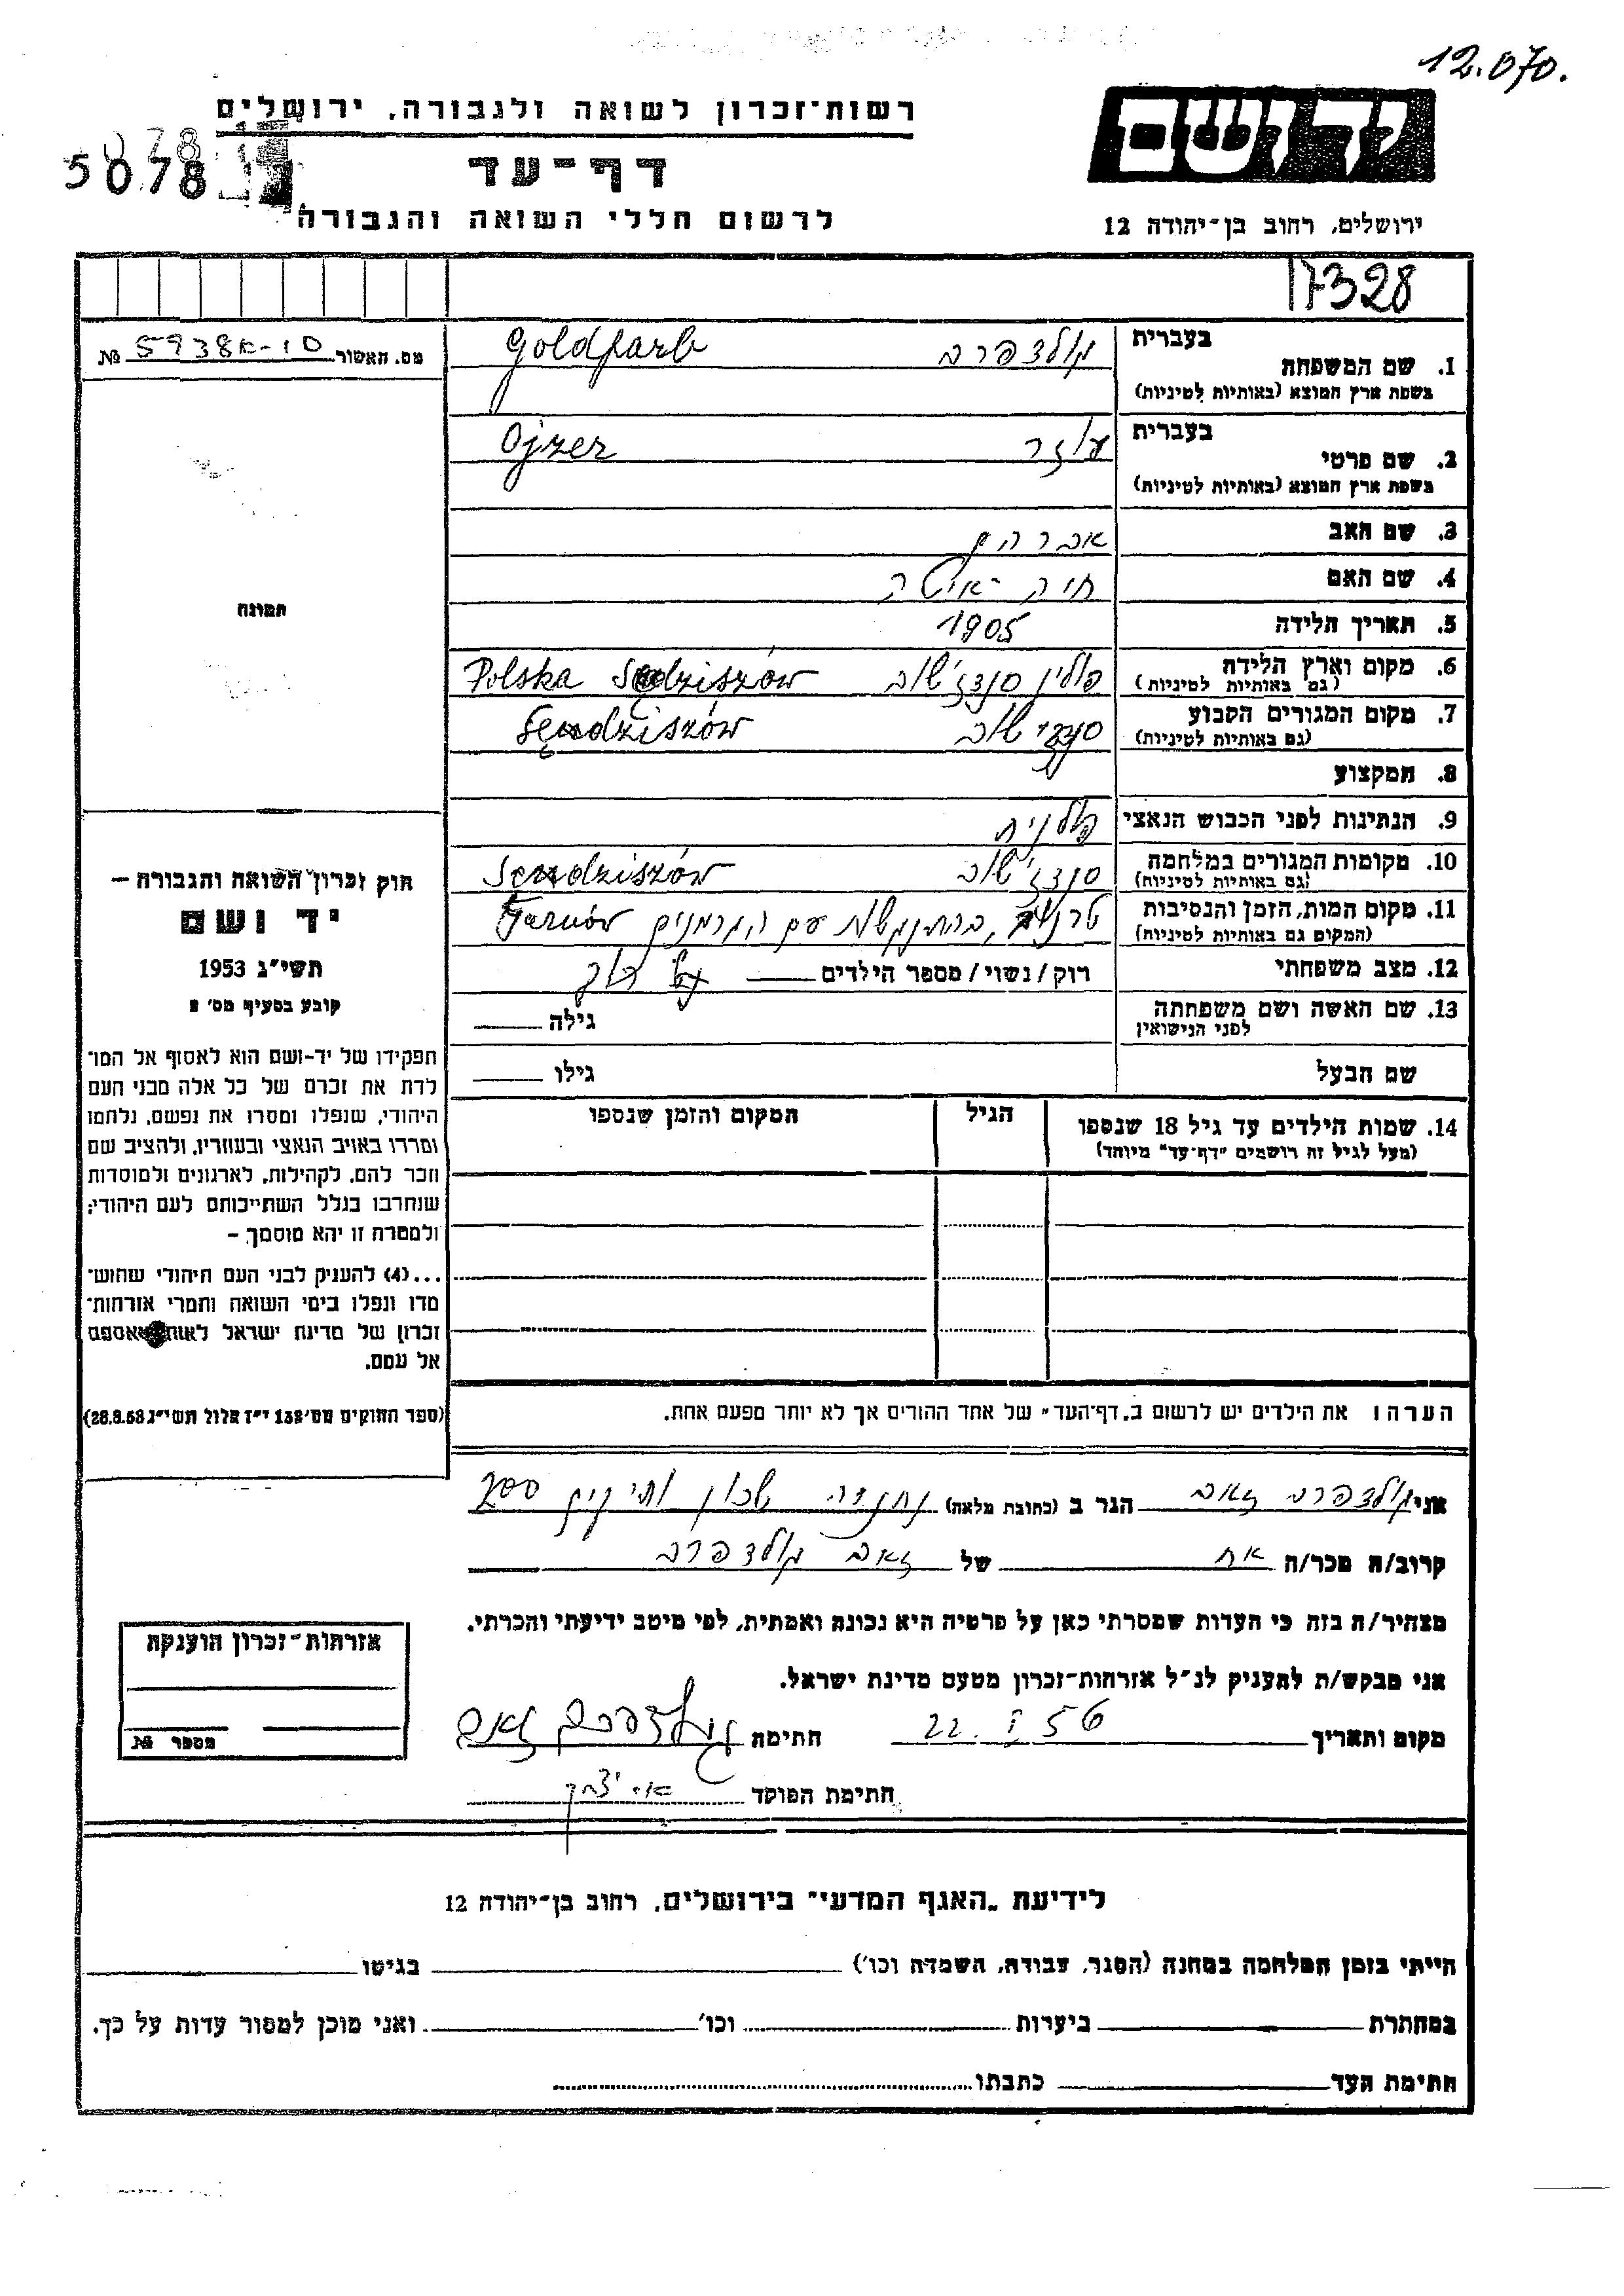 12.070.
רשות־זכרון לשואה ולגבורה, ירושלים
יד ושם
5078
דף־עד
לרשום חללי השואה והגבורה
ירושלים, רחוב בן־יהודה 12
17328
מס. האשור №
1. שם המשפחה בעברית גולדפרב Goldfarb
בשפת ארץ המוצא (באותיות לטיניות)
2. שם פרטי בעברית עוזר Ojzer
בשפת ארץ המוצא (באותיות לטיניות)
3. שם האב אברהם
4. שם האם חיה־איטה
5. תאריך הלידה 1905
6. מקום וארץ הלידה פולין סנדז'שוב Polska Sędziszów
(גם באותיות לטיניות)
7. מקום המגורים הקבוע Sędziszów
(גם באותיות לטיניות)
8. המקצוע
9. הנתינות לפני הכבוש הנאצי פולנית
10. מקומות המגורים במלחמה סנדז'שוב
(גם באותיות לטיניות)
11. מקום המות, הזמן והנסיבות בהתנגשות עם הגרמנים Tarnów
(המקום גם באותיות לטיניות)
12. מצב משפחתי רוק/נשוי/מספר הילדים
13. שם האשה ושם משפחתה גילה
לפני הנישואין
שם הבעל גילו
14. שמות הילדים עד גיל 18 שנספו הגיל המקום והזמן שנספו
(מעל לגיל זה רושמים "דף־עד" מיוחד)
תמונה
חוק זכרון השואה והגבורה –
יד ושם
תשי"ג 1953
קובע בסעיף מס' 2
תפקידו של יד-ושם הוא לאסוף אל המו־
לדת את זכרם של כל אלה מבני העם
היהודי, שנפלו ומסרו את נפשם, נלחמו
ומרדו באויב הנאצי ובעוזריו, ולהציב שם
וזכר להם, לקהילות, לארגונים ולמוסדות
שנחרבו בגלל השתייכותם לעם היהודי;
ולמטרה זו יהא מוסמך –
...(4) להעניק לבני העם היהודי שהוש־
מדו ונפלו בימי השואה והמרי אזרחות־
זכרון של מדינת ישראל לאות האספם
אל עמם.
(ספר החוקים מס' 132 י"ז אלול תשי"ג 28.8.53)
הערה: את הילדים יש לרשום ב„דף־העד" של אחד ההורים אך לא יותר מפעם אחת.
אני גולדפרב זאב הגר ב (כתובת מלאה) נתניה שכון ותיקים 200
קרוב/ה מכר/ה אח של זאב גולדפרב
מצהיר/ה בזה כי העדות שמסרתי כאן על פרטיה היא נכונה ואמתית, לפי מיטב ידיעתי והכרתי.
אני מבקש/ת להעניק לנ"ל אזרחות־זכרון מטעם מדינת ישראל.
מקום ותאריך 22. I 56 חתימה גולדפרב זאב
חתימת הפוקד
אזרחות־זכרון הוענקה
מספר №
לידיעת „האגף המדעי" בירושלים, רחוב בן־יהודה 12
הייתי בזמן המלחמה במחנה (הסגר, עבודה, השמדה וכו') בגיטו
במחתרת ביערות וכו' ואני מוכן למסור עדות על כך.
חתימת העד כתבתו